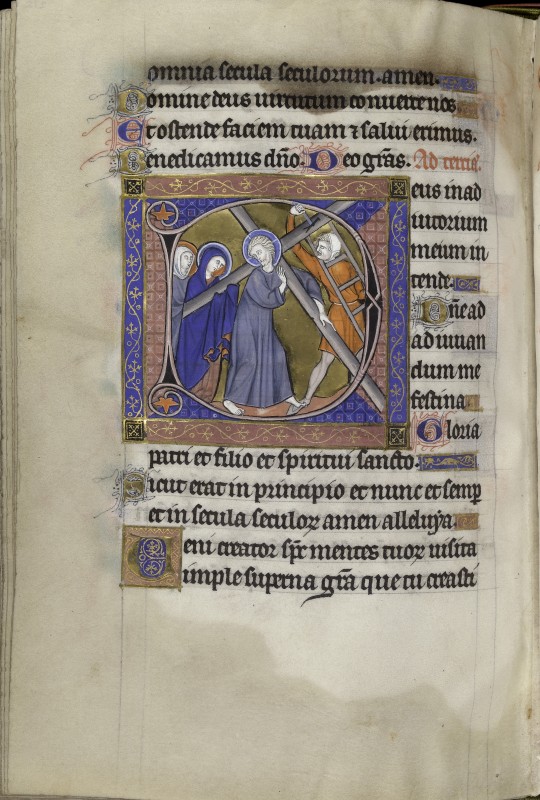 omnia secula seculorum. amen.
Domine deus uirtutum conuerte nos
Et ostende faciem tuam ⁊ salui erimus.
Benedicamus dño. Deo gr̃as. Ad tercia.
Deus in ad
iutorium
meum in
tende.
Dñe ad
adiuuan
dum me
festina
Gloria
patri et filio et spiritui sancto.
Sicut erat in principio et nunc et semp
et in secula seculoꝝ amen alleluya.
Ueni creator sp̃c mentes tuoꝝ uisita
imple superna gr̃a que tu creasti